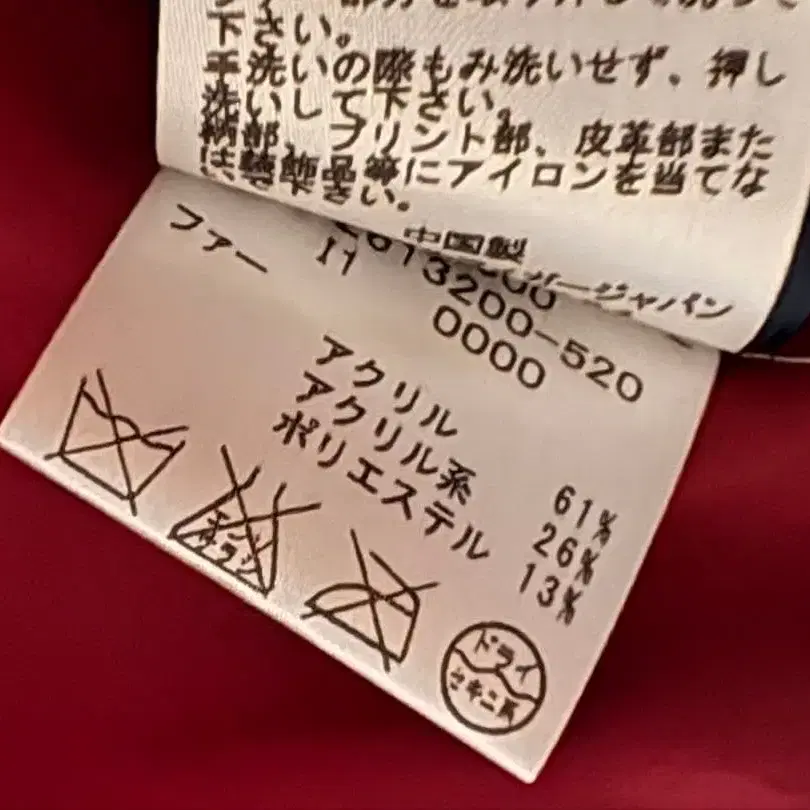 下さい。
手洗いの際もみ洗いせず、押し
洗いして下さい。
柄部、プリント部、皮革部また
は装飾品等にアイロンを当てな
いで下さい。
中国製
ジャパン
ファー
613200-520
0000
アクリル 61%
アクリル系 26%
ポリエステル 13%
エンソ
サラシ
ドライ
セキユ系